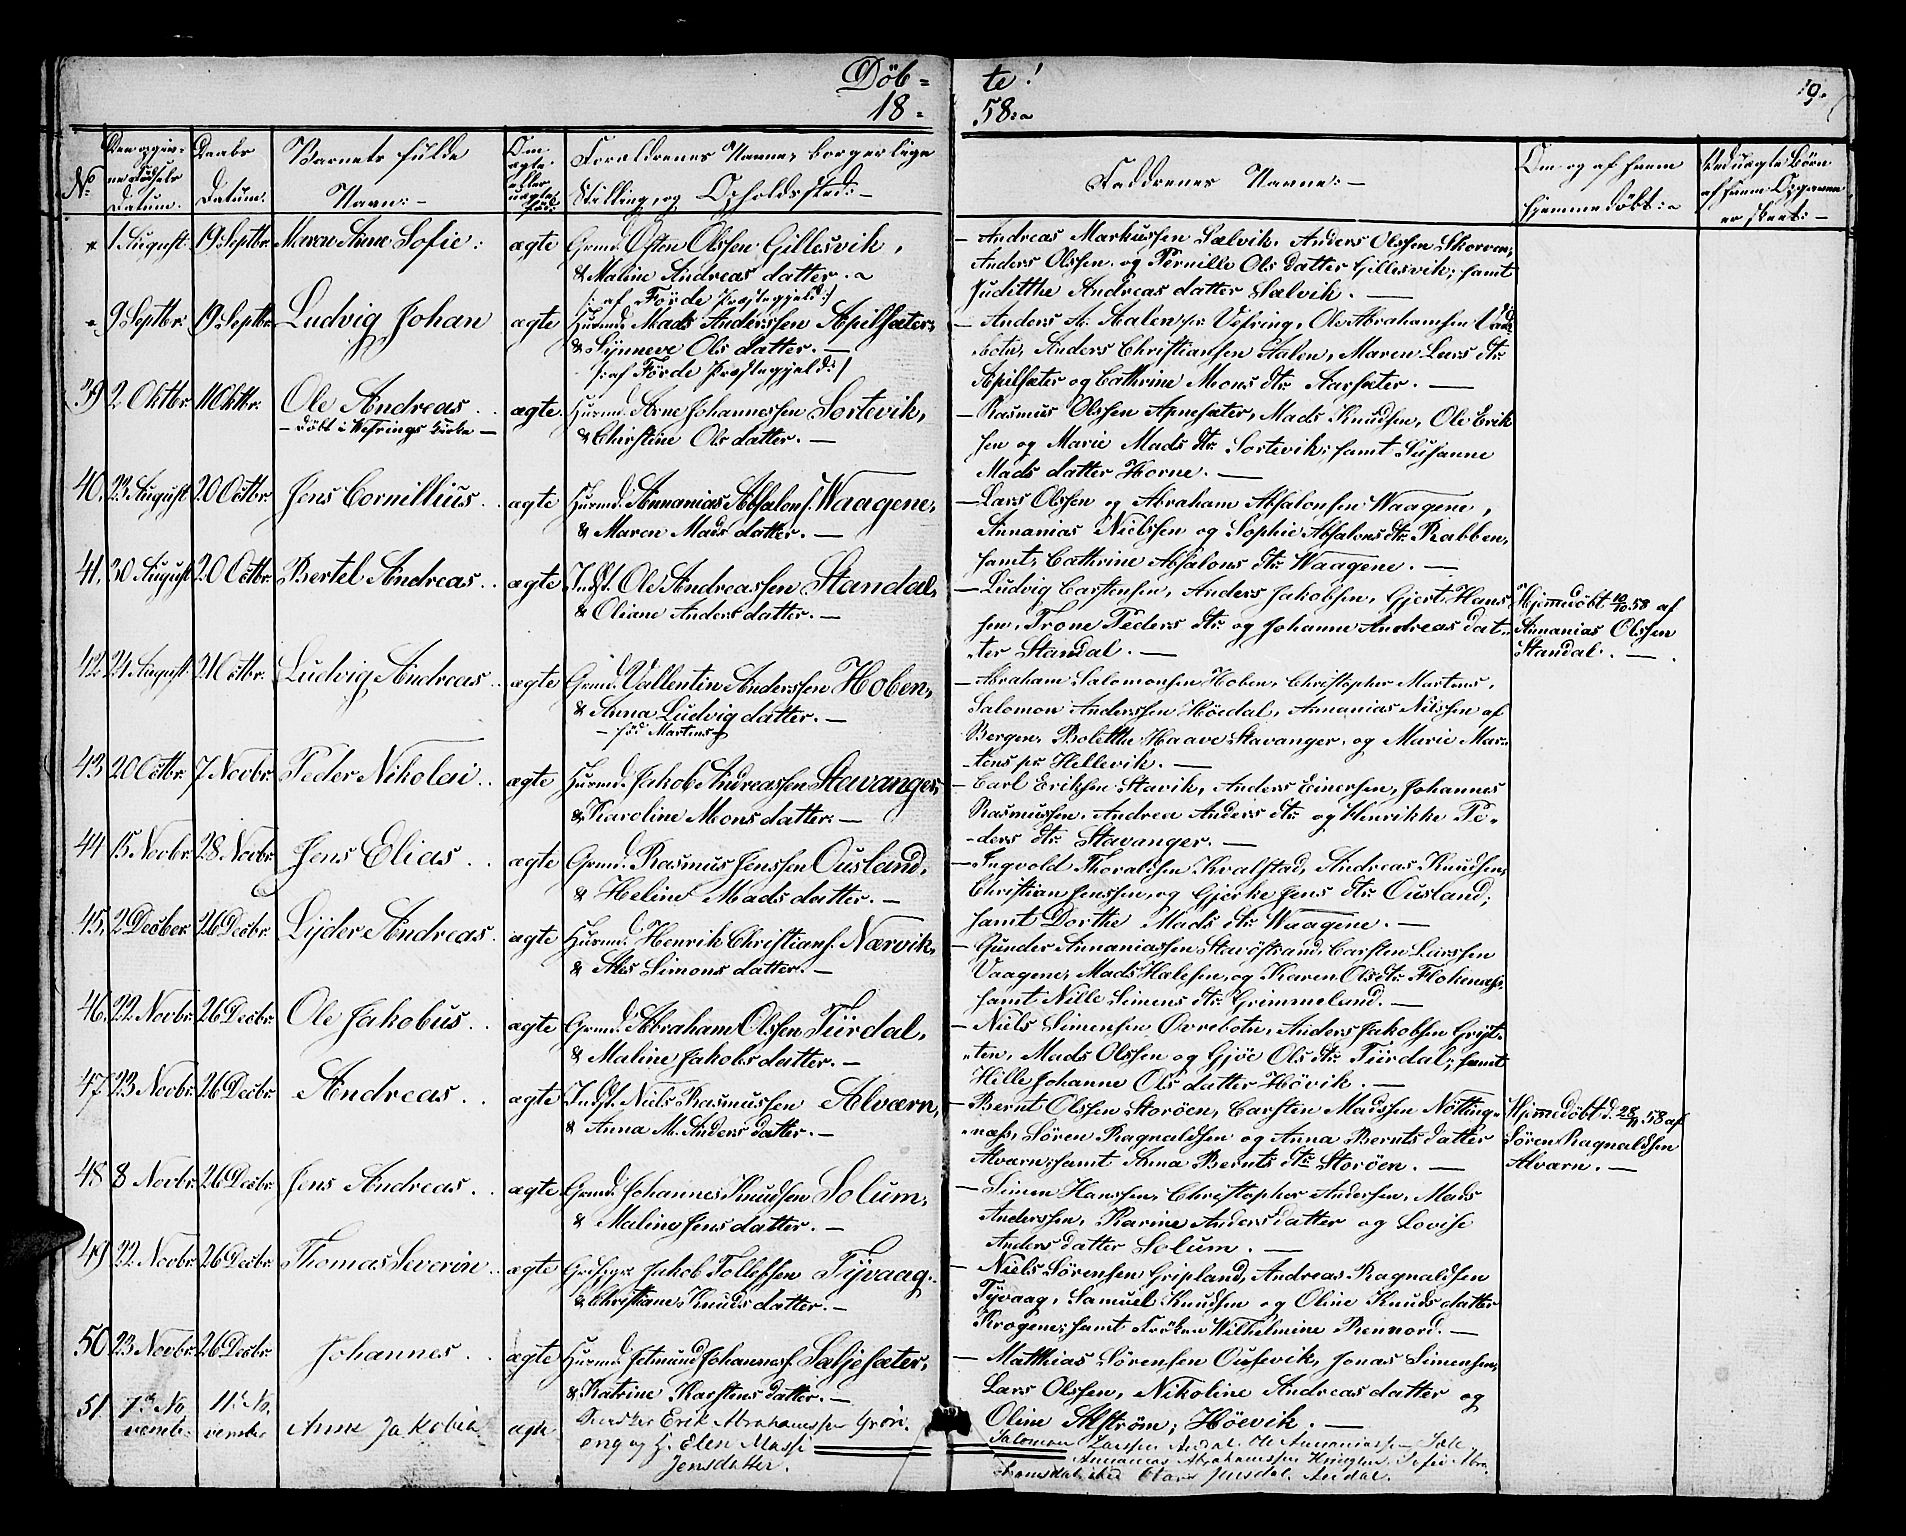 Döb=
18=
te!
58:~
19.
No
Den opgiv-
ne Födsels
Datum.
Daabs
Datum.
Barnets fulde
Navn:-
Om
ægte
eller
uægte
født:
Forældrenes Navne, borgerlige
Stilling, og Opholdssted:-
Faddrenes Navne:-
Om og af hvem
hjemmedöbt:-
Ved uægte Börn
af hvem Opgaven
er skeet:-
1 August. 19 Septbr. Maren Anne Sofie: ægte Grmd. Østen Olssen Gillesvik,
& Maline Andreas datter.
/: af Förde Præstegjeld:/
- Andreas Markussen Sælvik, Anders Olssen Skorven,
Anders Olssen og Pernille Ols datter Gillesvik; samt
Juditthe Andreas datter Sælvik. -
9 Septbr. 19 Septbr. Ludvig Johan ægte Husmd. Mads Anderssen Apilsæter,
& Synneve Ols datter. -
/: af Förde Præstegjeld:/
- Anders A. Aalen pr Vefring, Ole Abrahamsen Land
botn, Anders Christianssen Aalen, Maren Lars dtr
Apilsæter og Cathrine Mons dtr Aarsæter. -
39 2 Oktbr. 11 Oktbr. Ole Andreas. ægte. Husmd. Arne Johannessen Sortevik,
- döbt i Vefrings Kirke -
& Christine Ols datter. -
- Rasmus Olssen Apnesæter, Mads Knudsen, Ole Erik
sen og Marie Mads dtr Sortevik; samt Susanne
Mads datter Horne. -
40. 23 August 20 Octbr. Jens Cornillius. ægte Husmd. Annanias Absalons. Waagene,
& Maren Mads datter. -
- Lars Olssen og Abraham Absalonsen Waagene,
Annanias Nielssen og Sophie Absalons dtr Rabben,
samt Cathrine Absalons dtr Waagene. -
41. 30 August 20 Octbr. Bertel Andreas. ægte Indst. Ole Andreassen Standal,
& Oliane Anders datter. -
- Ludvig Carstensen, Anders Jakobsen, Gjert Hans
sen, Trone Peders dtr og Johanne Andreas dat-
ter Standal. -
Hjemmedöbt 10/10 58 af
Annanias Olssen
Standal. -
42. 24 August. 24 Octbr. Ludvig Andreas. ægte Grmd. Vallentin Anderssen Hoben,
& Anna Ludvig datter. -
- föd Martens -
- Abraham Salomonsen Hoben, Christopher Martens,
Salomon Anderssen Höedal, Annanias Nilssen af
Bergen, Bolethe Haave Stavanger, og Marie Mar-
tens pr Hellevik. -
43 20 Octbr. 7 Novbr. Peder Nikolai. ægte Husmd. Jakob Andreassen Stavanger,
& Karoline Mons datter: -
- Carl Eriksen Stavik, Anders Einersen, Johannes
Rasmussen, Andrea Anders dtr og Henrikke Pe-
ders dtr Stavanger. -
44 15 Novbr. 28 Novbr. Jens Elias. ægte Grmd. Rasmus Jenssen Ousland,
& Heline Mads datter. -
- Ingvold Thoraldsen Kvalstad, Andreas Knudsen,
Christian Jenssen, og Gjerke Jens dtr Ousland;
samt Dorthe Mads dtr Waagene. -
45. 2 Decber. 26 Decbr. Lyder Andreas. ægte Husmd. Henrik Christians. Nærvik,
& Ales Simons datter. -
- Gunder Annaniassen Stavöstrand, Carsten Larssen
Vaagene, Mads Halesen, og Karen Ols dtr Flokenæs,
samt Nille Simens dtr Grimmeland. -
46. 22 Novbr. 26 Decbr. Ole Jakobus. ægte Grmd. Abraham Olssen Tiirdal,
& Maline Jakobs datter. -
- Niels Simensen Ovrebotn, Anders Jakobsen Gript-
ten, Mads Olssen og Gjöe Ols dtr Tiirdal; samt
Hille Johanne Ols datter Hövik. -
47 23 Novbr. 26 Decbr. Andreas. ægte Indst. Niels Rasmussen Alværn,
& Anna M. Anders datter. -
- Bernt Olssen Storöen, Carsten Madssen Nötting-
næss, Sören Ragnaldsen og Anna Bernts datter
Alvarn; samt Anna Bernts dtr Storöen. -
Hjemmedöbt d. 28/11 58 af
Sören Ragnaldsen
Alvarn. -
48 8 Novbr. 26 Decbr. Jens Andreas. ægte Grmd. Johannes Knudsen Solum,
& Maline Jens datter. -
- Simen Hanssen, Christopher Andersen, Mads
Anderssen, Karine Anders datter og Lovise
Anders datter Solum. -
49 22 Novbr. 26 Decbr. Thomas Severin. ægte Jakob Tollefssen Tyvaag.
& Christiane Knuds datter. -
- Niels Sörensen Gripland, Andreas Ragnaldsen
Tyvaag, Samuel Knudsen og Oline Knuds datter
Krogene; samt Fröken Wilhelmine Rennord. -
50 23 Novbr. 26 Decbr. Johannes. ægte Husmd. Johannes. Seljesæter,
& Katrine Karstens datter. -
- Matthias Sörensen Ousevik, Jonas Simensen,
Lars Olssen, Nikoline Andreas datter og
Oline Alström, Höevik. -
51. 7de No 11te No.
vembr. vember Anne Jakobia ægte Erik Abrahamssen Grön
eng og H. Elen
Jensdatter.
Salomon Larssen Ole Annaniassen
Annanias Abrahamssen Sofie Abra
hamsdatter Jensdat.